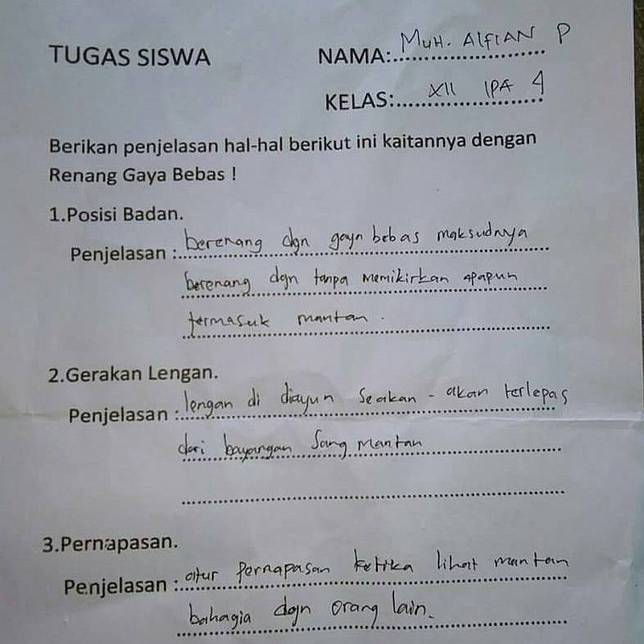 TUGAS SISWA
NAMA: MUH. AlFIAN P
KELAS: XII IPA 4
Berikan penjelasan hal-hal berikut ini kaitannya dengan
Renang Gaya Bebas !
1.Posisi Badan.
Penjelasan : berenang dgn gaya bebas maksudnya
berenang dgn tanpa memikirkan apapun
termasuk mantan.
2.Gerakan Lengan.
Penjelasan : lengan di diayun seakan-akan terlepas
dari bayangan sang mantan
3.Pernapasan.
Penjelasan : atur pernapasan ketika lihat mantan
bahagia dgn orang lain.